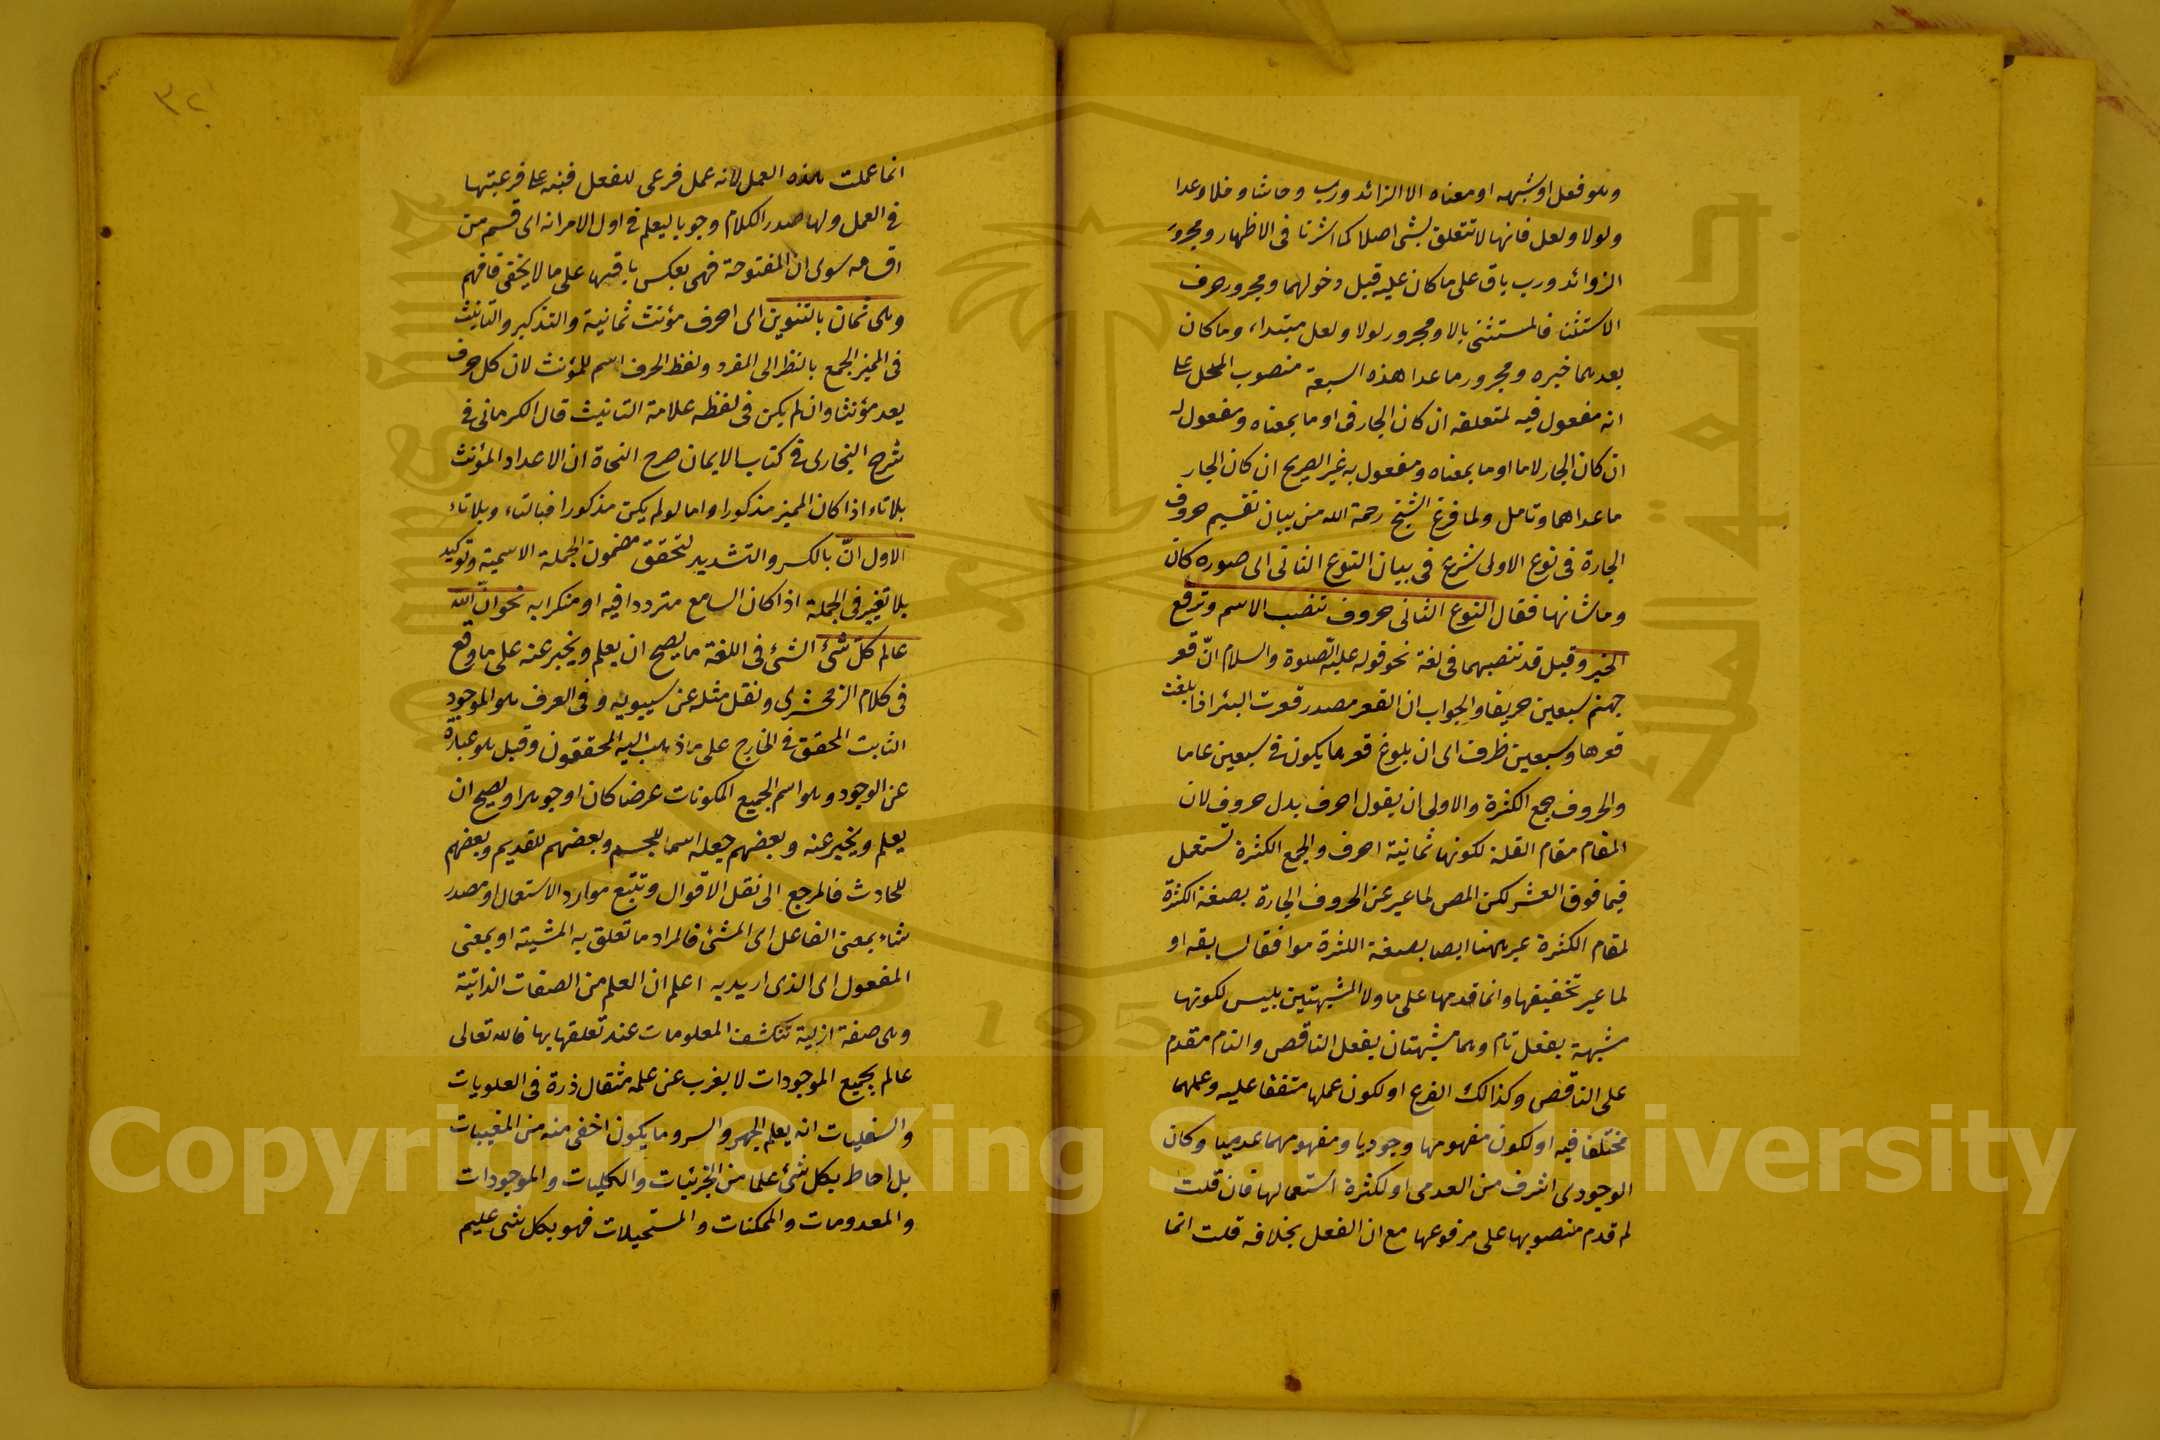 وهو فعل او شبهه او معناه الا الزائد ورب وحاشا وخلا وعدا
ولولا ولعل فانها لا تتعلق بشئ اصلا كما اشرنا فى الاظهار ومجرور
الزوائد ورب باق على ما كان عليه قبل دخولهما ومجرور حرف
الاستثنا فالمستثنى بالا ومجرور لولا ولعل مبتداء وما كان
بعدهما خبره ومجرور ما عدا هذه السبعة منصوب المحل على
انه مفعول فيه لمتعلقه ان كان الجار فى او ما بمعناه ومفعول له
ان كان الجار لاما او ما بمعناه ومفعول به غير الصريح ان كان الجار
ما عداهما وتامل ولما فرغ الشيخ رحمة الله من بيان تقسيم حروف
الجارة فى نوع الاولى شرع فى بيان النوع الثانى الى صوره كان
وما شانها فقال النوع الثانى حروف تنصب الاسم وترفع
الخبر وقيل قد تنصبهما فى لغة نحو قوله عليه الصلوة والسلام انّ قعر
جهنم سبعين خريفا والجواب ان القعر مصدر قعرت البئر اذا بلغت
قعرها وسبعين ظرف اى ان بلوغ قعرها يكون فى سبعين عاما
والحروف جمع الكثرة والاولى ان يقول احرف بدل حروف لان
المقام مقام القلة لكونها ثمانية احرف والجمع الكثرة تستعمل
فيما فوق العشر لكن المص لما عبر عن الحروف الجارة بصيغة الكثرة
لمقام الكثرة عبر ههنا ايضا بصيغة الكثرة موافقا لسابقه او
لما عبر تخفيفها وانما قدمها على ما ولا المشبهتين بليس لكونها
شبهة بفعل تام وهما مشبهتان بفعل الناقص والتام مقدم
على الناقص وكذالك الفرع او لكون عملها متفقا عليه وعملهما
مختلفا فيه او لكون مفهومها وجوديا ومفهومهما عدميا وكان
الوجودى اشرف من العدمى او لكثرة استعمالها فان قلت
لم قدم منصوبها على مرفوعها مع ان الفعل بخلافه قلت انما
٣٢
انما عملت هذه العمل لانه عمل فرعى للفعل فنبه على فرعيتها
فى العمل ولها صدر الكلام وجوبا ليعلم فى اول الامر انه اى قسم من
اقسامه سوى ان المفتوحة فهى بعكس باقيها على ما لا يخفى فافهم
وهى ثمان بالتنوين اى احرف مؤنث ثمانية والتذكير والتانيث
فى المميز الجمع بالنظر الى المفرد ولفظ الحرف اسم للمؤنث لان كل حرف
يعد مؤنثا وان لم يكن فى لفظه علامة التانيث قال الكرمانى فى
شرح البخارى فى كتاب الايمان صرح النحاة ان الاعداد المؤنث
بلا تاء اذا كان المميز مذكورا واما لو لم يكن مذكورا فبالتاء وبلا تاء
الاول انّ بالكسر والتشديد لتحقق مضمون الجملة الاسمية وتوكيد
بلا تغيير فى الجملة اذا كان السامع مترددا فيه او منكرا به نحو انّ الله
عالم كل شئ الشئ فى اللغة ما يصح ان يعلم ويخبر عنه على ما وقع
فى كلام الزمخشرى ونقل مثله عن سيبويه وفى العرف هو الموجود
الثابت المحقق فى الخارج على ما ذهب اليه المحققون وقيل هو عبارة
عن الوجود وهو اسم لجميع المكونات عرضا كان او جوهرا ويصح ان
يعلم ويخبر عنه وبعضهم جعله اسما للجسم وبعضهم للقديم وبعضهم
للحادث فالمرجع الى نقل الاقوال وتتبع موارد الاستعمال او مصدر
شاء بمعنى الفاعل اى المشئ فالمراد ما تعلق به المشيئة او بمعنى
المفعول اى الذى اريد به اعلم ان العلم من الصفات الذاتية
وهى صفة ازلية تنكشف المعلومات عند تعلقها بها فالله تعالى
عالم بجميع الموجودات لا يغرب عن علمه مثقال ذرة فى العلويات
والسفليات انه يعلم الجهر والسر وما يكون اخفى منه من المغيبات
بل احاط بكل شئ علما من الجزئيات والكليات والموجودات
والمعدومات والممكنات والمستحيلات فهو بكل شى عليم
جامعة الملك سعود
King Saud University
1957
Copyright © King Saud University